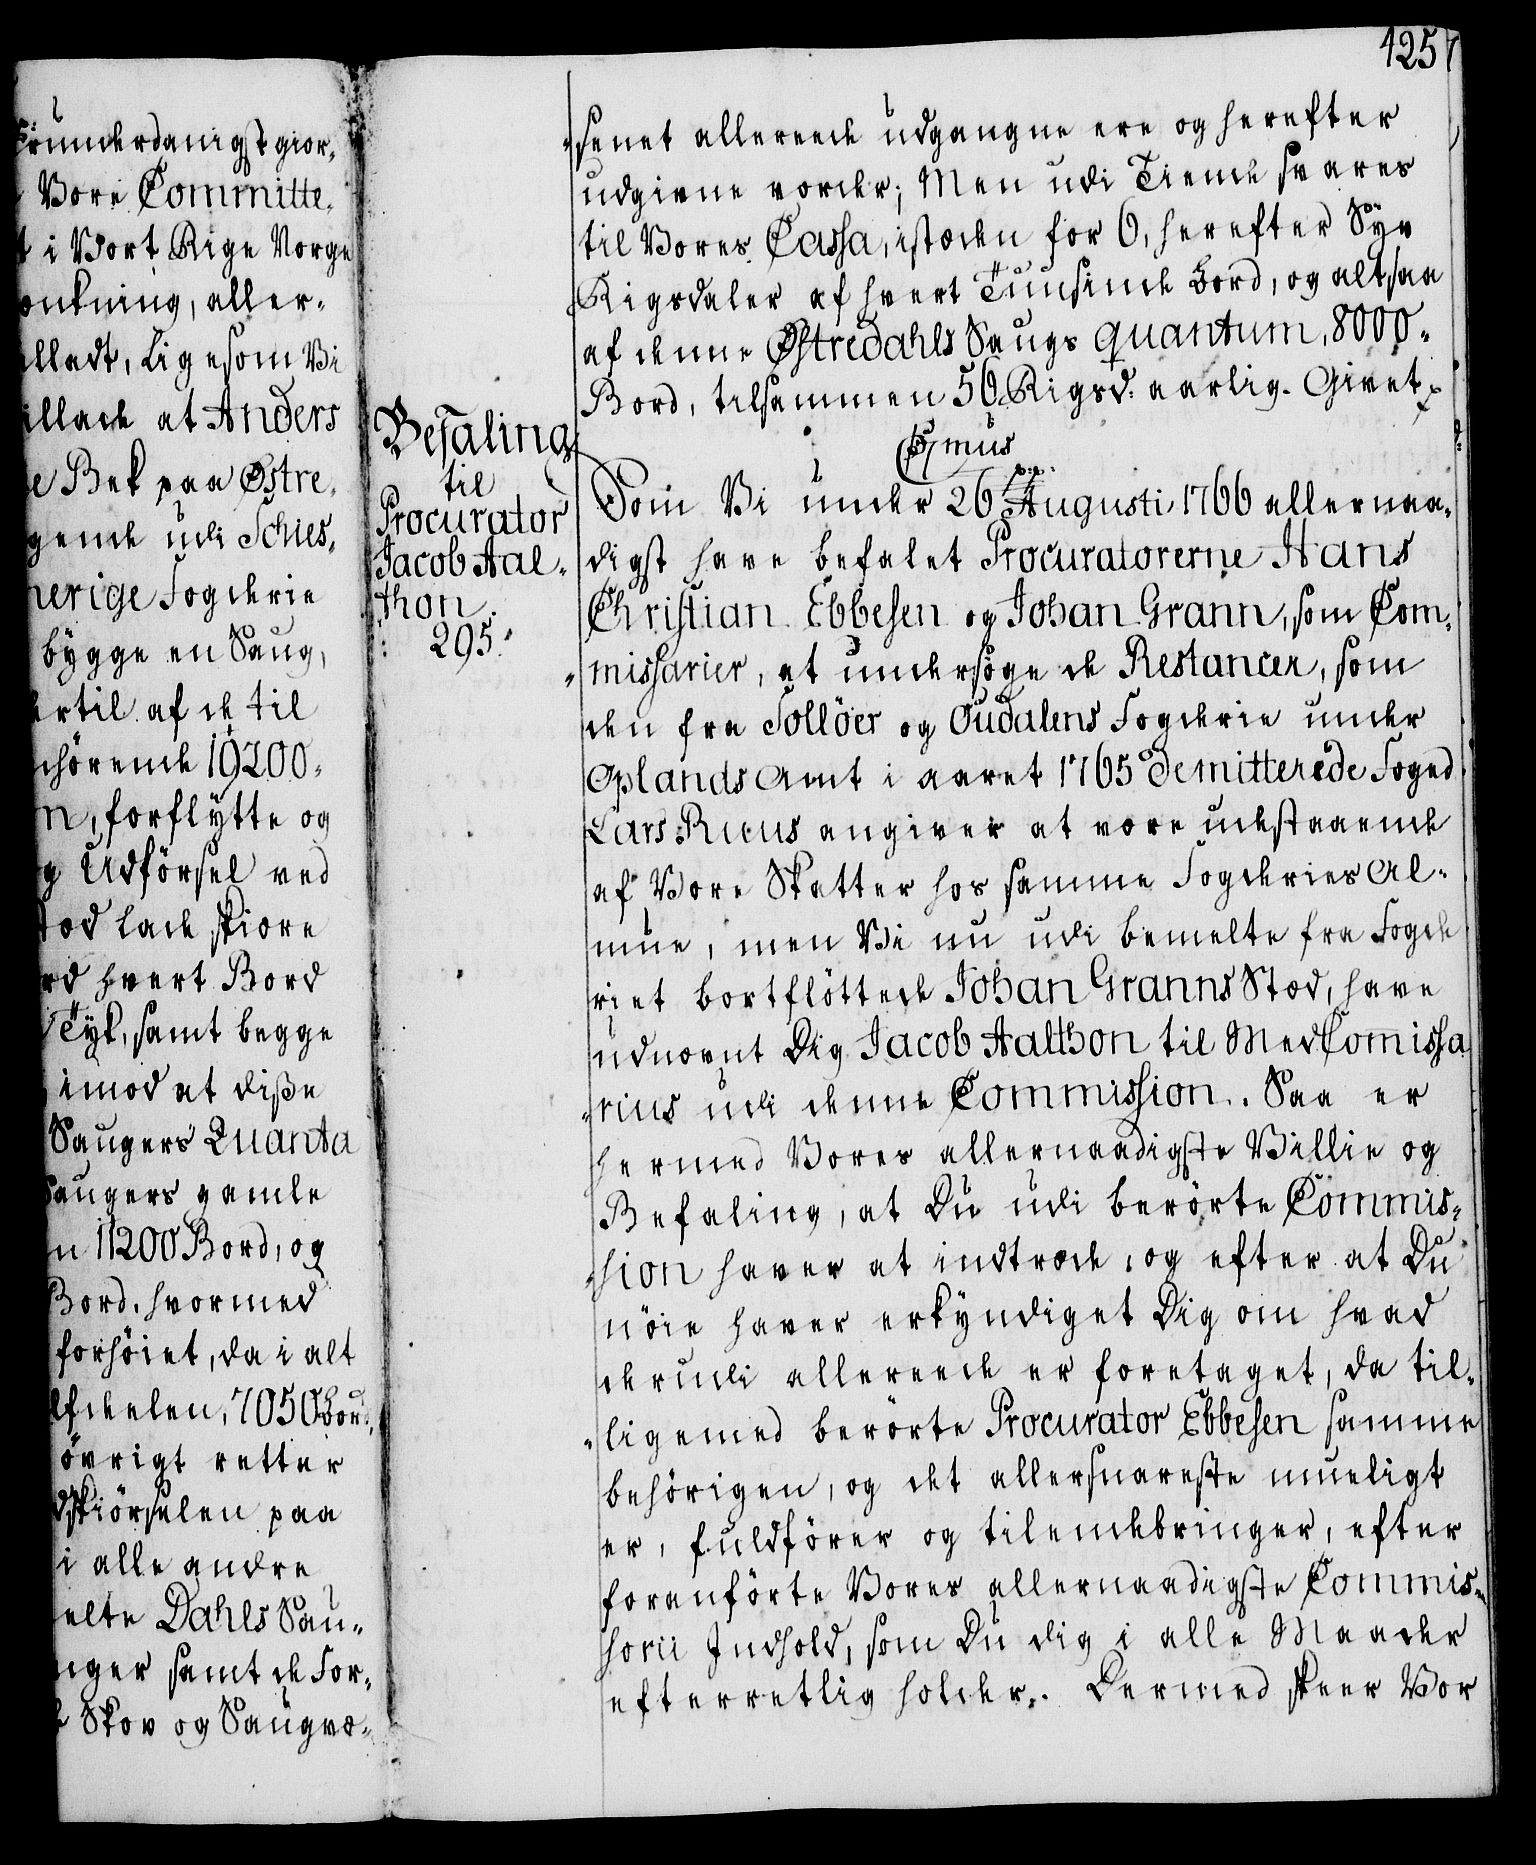 425
ründerdanigst gior„
Vore Committe„
t i Vort Rige Norge
onkning, aller„
lladt, Ligesom Vi
illade at Anders
e Bek paa Østre„
gende udi Schies„
nerige Fogderie
bygge en Saug,
ertil af de til
ehörende 19200„
n, forflytte og
g Udförsel ved
tod lade skiære
rd hvert Bord
Tyk, samt begge
imod at diße
Saugers Quanta
Saugers gamle
n 11200 Bord, og
Bord, hvormed
forhöiet, da i alt
lfdelen, 7050 Bord„
övrigt retter
dskiörselen paa
i alle andre
elte Dahls Sau„
nger samt de For„
Skov og Saugvæ„
„senet allereede udgangne ere og herefter
udgivne vorder; Men udi Tiende svares
til Vores Cassa, istæden for 6, herefter Syv
Rigsdaler af hvert Tuusinde Bord, og altsaa
af denne Østredahls Saugs quantum, 8000„
Bord, tilsammen 56 Rigsd: aarlig. Givet p
Befaling
til
Procurator
Jacob Aal„
thon.
295.
C 7mus
Som Vi under 26 Augusti 1766 allernaa„
digst have befalet Procuratorerne Hans
Christian Ebbesen og Johan Grann, som Com„
„missarier, at undersöge de Restancer, som
den fra Solløer og Oudalens Fogderie under
Oplands Amt i aaret 1765 demitterede Foged
Lars Ruus angiver at være udestaaende
af Vore Skatter hos samme Fogderies Al„
mue, men Vi nu udi bemelte fra Fogde
riet bortflöttede Johan Granns Stæd, have
udnævnt Dig Jacob Aalthon til MedComissa
„rius udi denne Commission. Saa er
hermed Vores allernaadigste Villie og
Befaling, at Du udi berörte Commis„
„sion haver at indtræde, og efter at Du
nöie haver erkyndiget Dig om hvad
derudi allereede er foretaget, da til„
„ligemed berörte Procurator Ebbesen samme
behörigen, og det allersnareste mueligt
er, fuldförer og tilendebringer, efter
foranförte Vores allernaadigste Commis„
sorii Indhold, som Du dig i alle Maader
efterretlig holder. Dermed skeer Vor